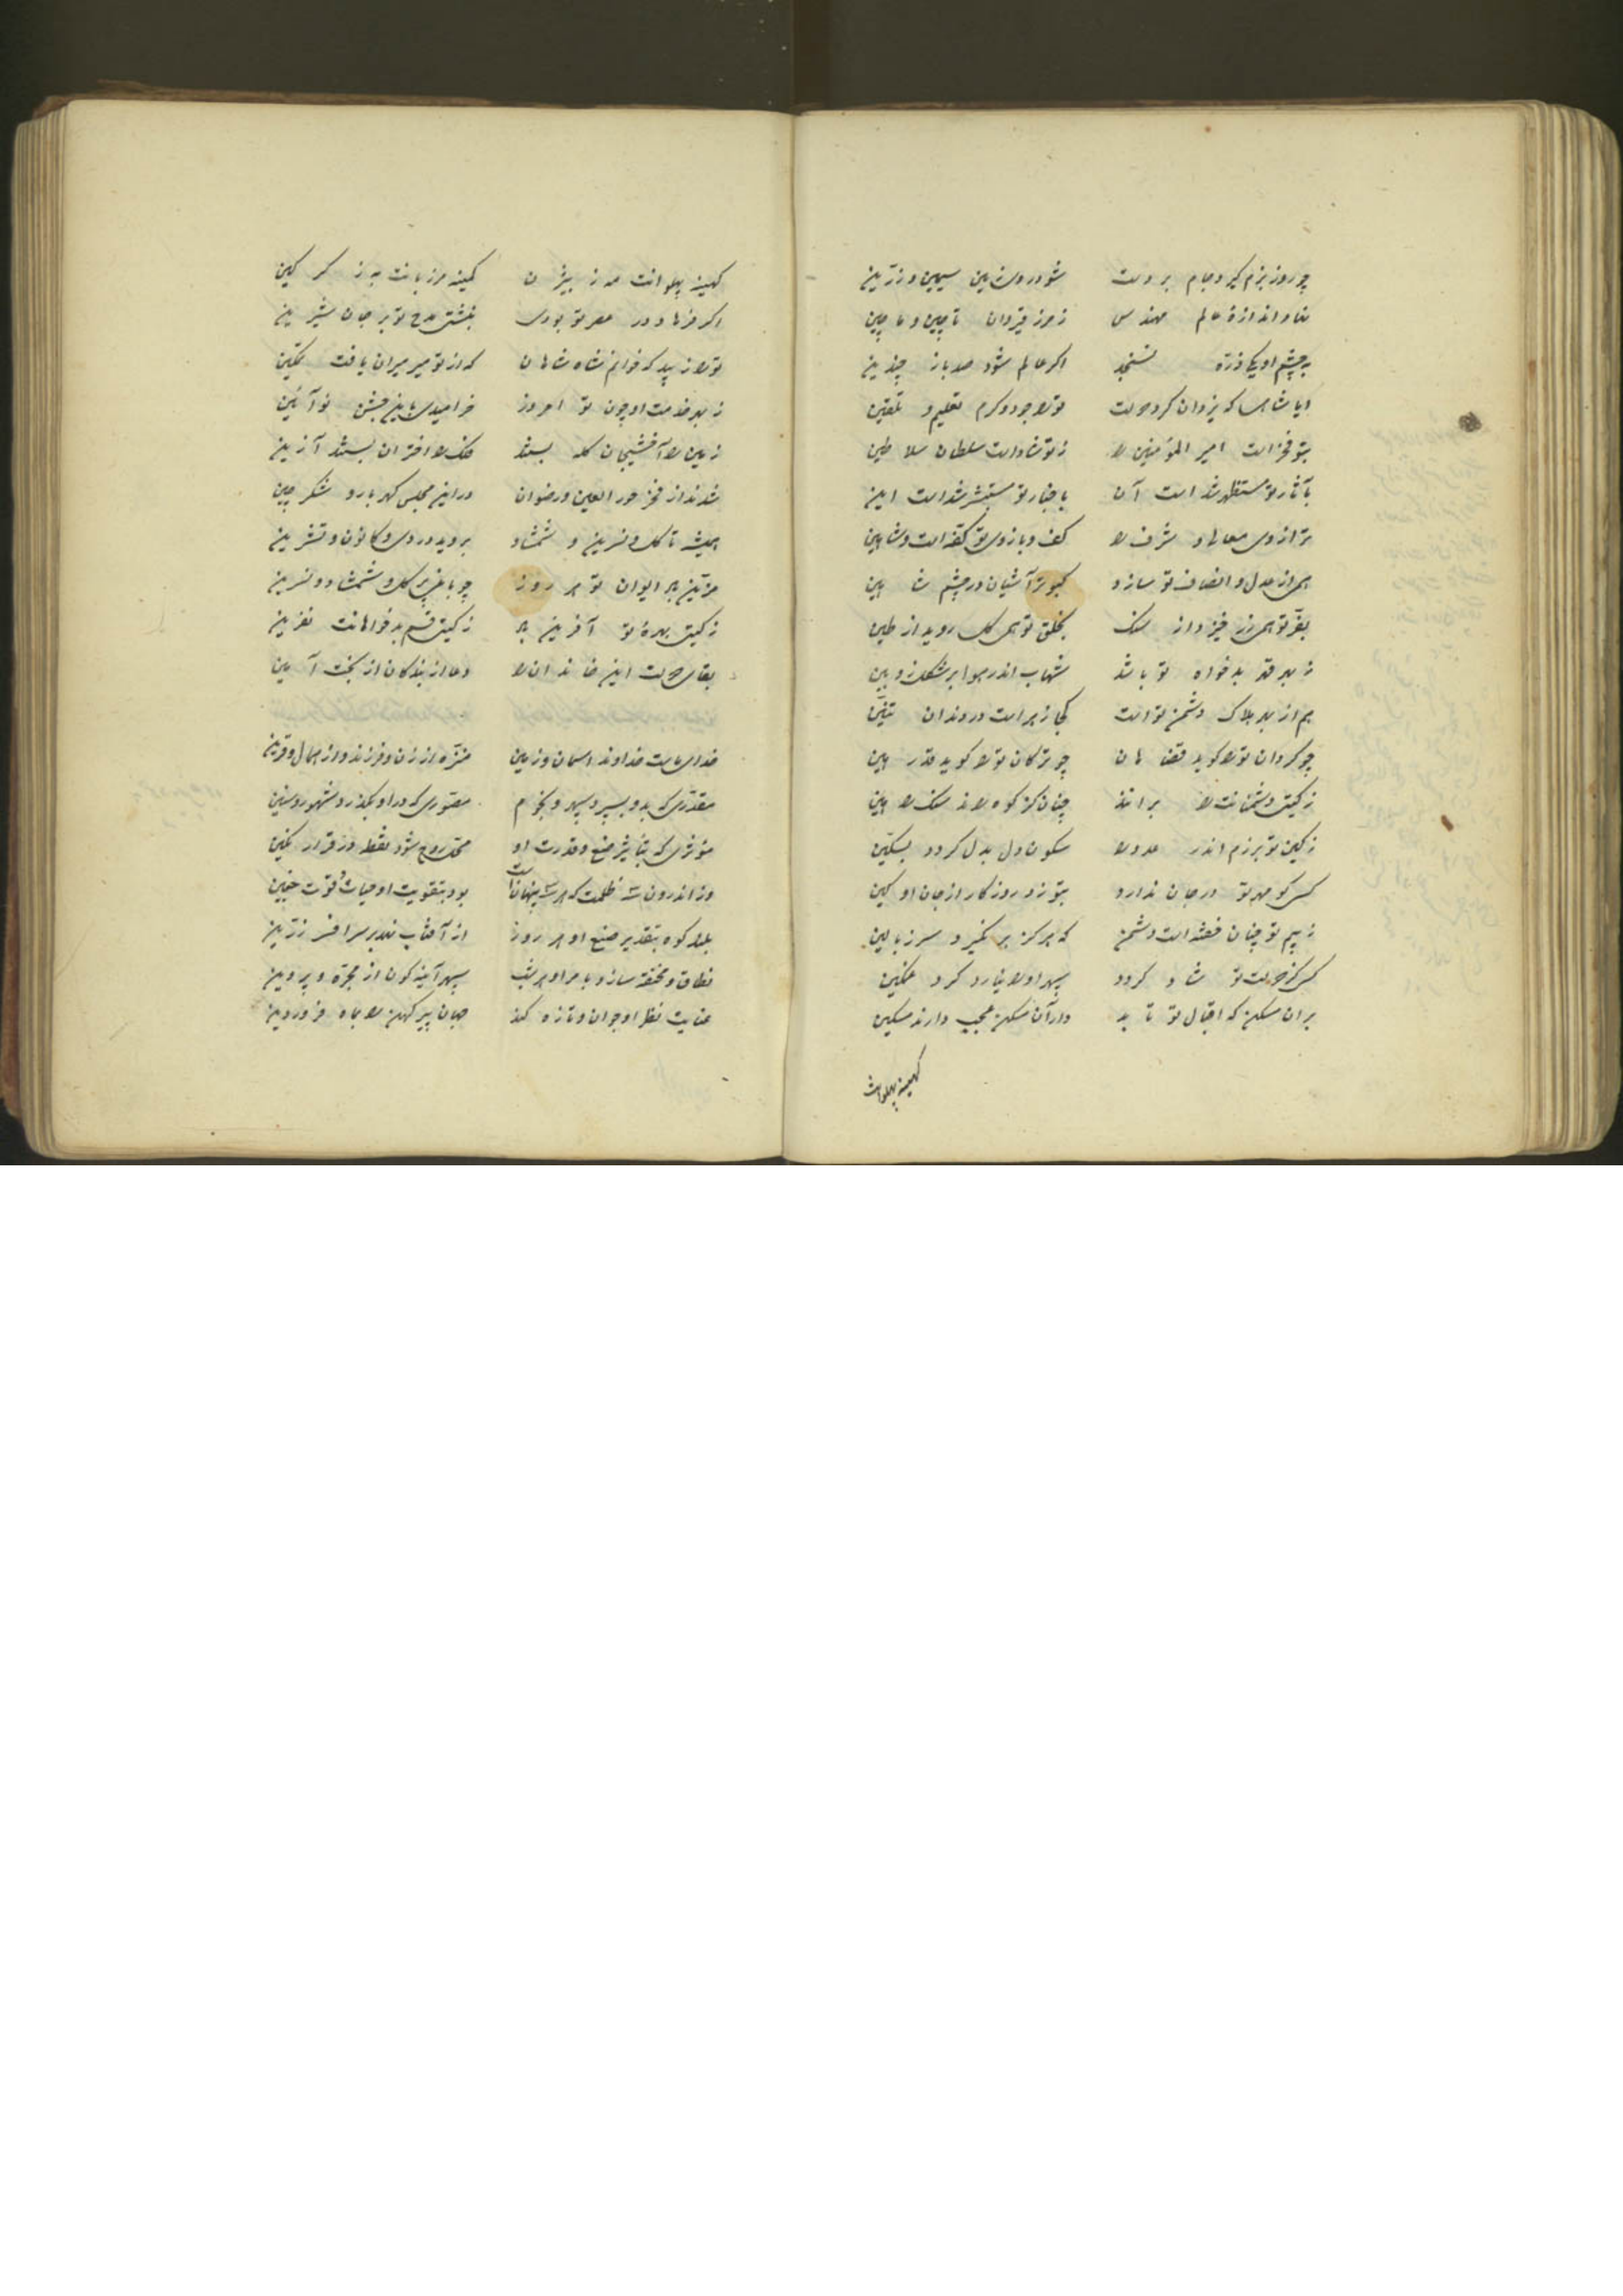 چو روز بزم گیرد جام بر دست شود روی زمین سیمین و زرین
نهاد اندازهٔ عالم مهندس ز مرز قیروان تا چین و ماچین
به چشم او یکی ذره نسنجد اگر عالم شود صد بار چندین
ایا شاهی که یزدان کرد و دولت ترا جود و کرم تعلیم و تلقین
بتو فخر است امیر المؤمنین را ز تو شاد است سلطان سلاطین
بآثار تو مستظهر شد است آن باخبار تو مستبشر شد است این
ترازوی معالی و شرف را کف و بازوی تو کفه است و شاهین
همی از عدل و انصاف تو سازد کبوتر آشیان در چشم شاهین
بفر تو همی زر خیزد از سنگ بخلق تو همی گل روید از طین
ز بهر قهر بدخواه تو باشد شهاب اندر هوا بر شکل زوبین
هم از بهر هلاک دشمن تو است کجا زهر است در دندان تنین
چو گردان ترا گوید قضا هان چو ترکان ترا گوید قدر هین
ز گیتی دشمنانت را براند چنان کز کوه راند سنگ را هین
ز کین تو برزم اندر عدو را سکون دل بدل گردد بسکین
کسی کو مهر تو در جان ندارد بتوزد روزگار از جان او کین
ز بیم تو چنان خفته است دشمن که هرگز بر نگیرد سر ز بالین
کسی کز دولت تو شاد گردد سپهر او را نیارد کرد غمگین
بر ان مسکن که اقبال تو تابد در آن مسکن عجب دارند مسکین
کهینه پهلوانت
کهینه پهلوانت مه ز بیژن کمینه مرزبانت به ز گرگین
اگر فرهاد در عصر تو بودی نبشتی مدح تو بر جان شیرین
ترا زیبد که خوانم شاه شاهان که از تو میر میران یافت تمکین
ز بهر خدمت او چون تو امروز خرامیدی باین جشن نوآئین
زمین را آخشیجان کله بستند فلک را اختران بستند آزین
شدند از فخر حور العین و رضوان در این مجلس گهربار و شکر چین
همیشه تا گل و نسرین و شمشاد بروید در دی و کانون و تشرین
مزین باد ایوان تو هر روز چو باغی پر گل و شمشاد و نسرین
ز گیتی بهرهٔ تو آفرین باد ز گیتی قسم بدخواهانت نفرین
بقای دولت این خاندان را دعا از بندگان از بخت آمین
خدای ماست خداوند اسمان و زمین منزه از زن و فرزند و از همال و قرین
مقدری که بدو بسپرد سپهر و نجوم مصوری که در او بگذرد شهور و سنین
مؤثری که بتاثیر صنع و قدرت او محل روح شود نطفه در قرار مکین
وز اندرون سه ظلمت که هر سه پنهانست بود بتقویت او حیات و قوت جنین
بلند کوه بتقدیر صنع او هر روز از آفتاب نهد بر سر افسر زرین
نطاق و مخنقه سازد بامر او هر شب سپهر آینه گون از مجره و پروین
عنایت نظر او جوان و تازه کند جهان پیر کهن را بماه فروردین